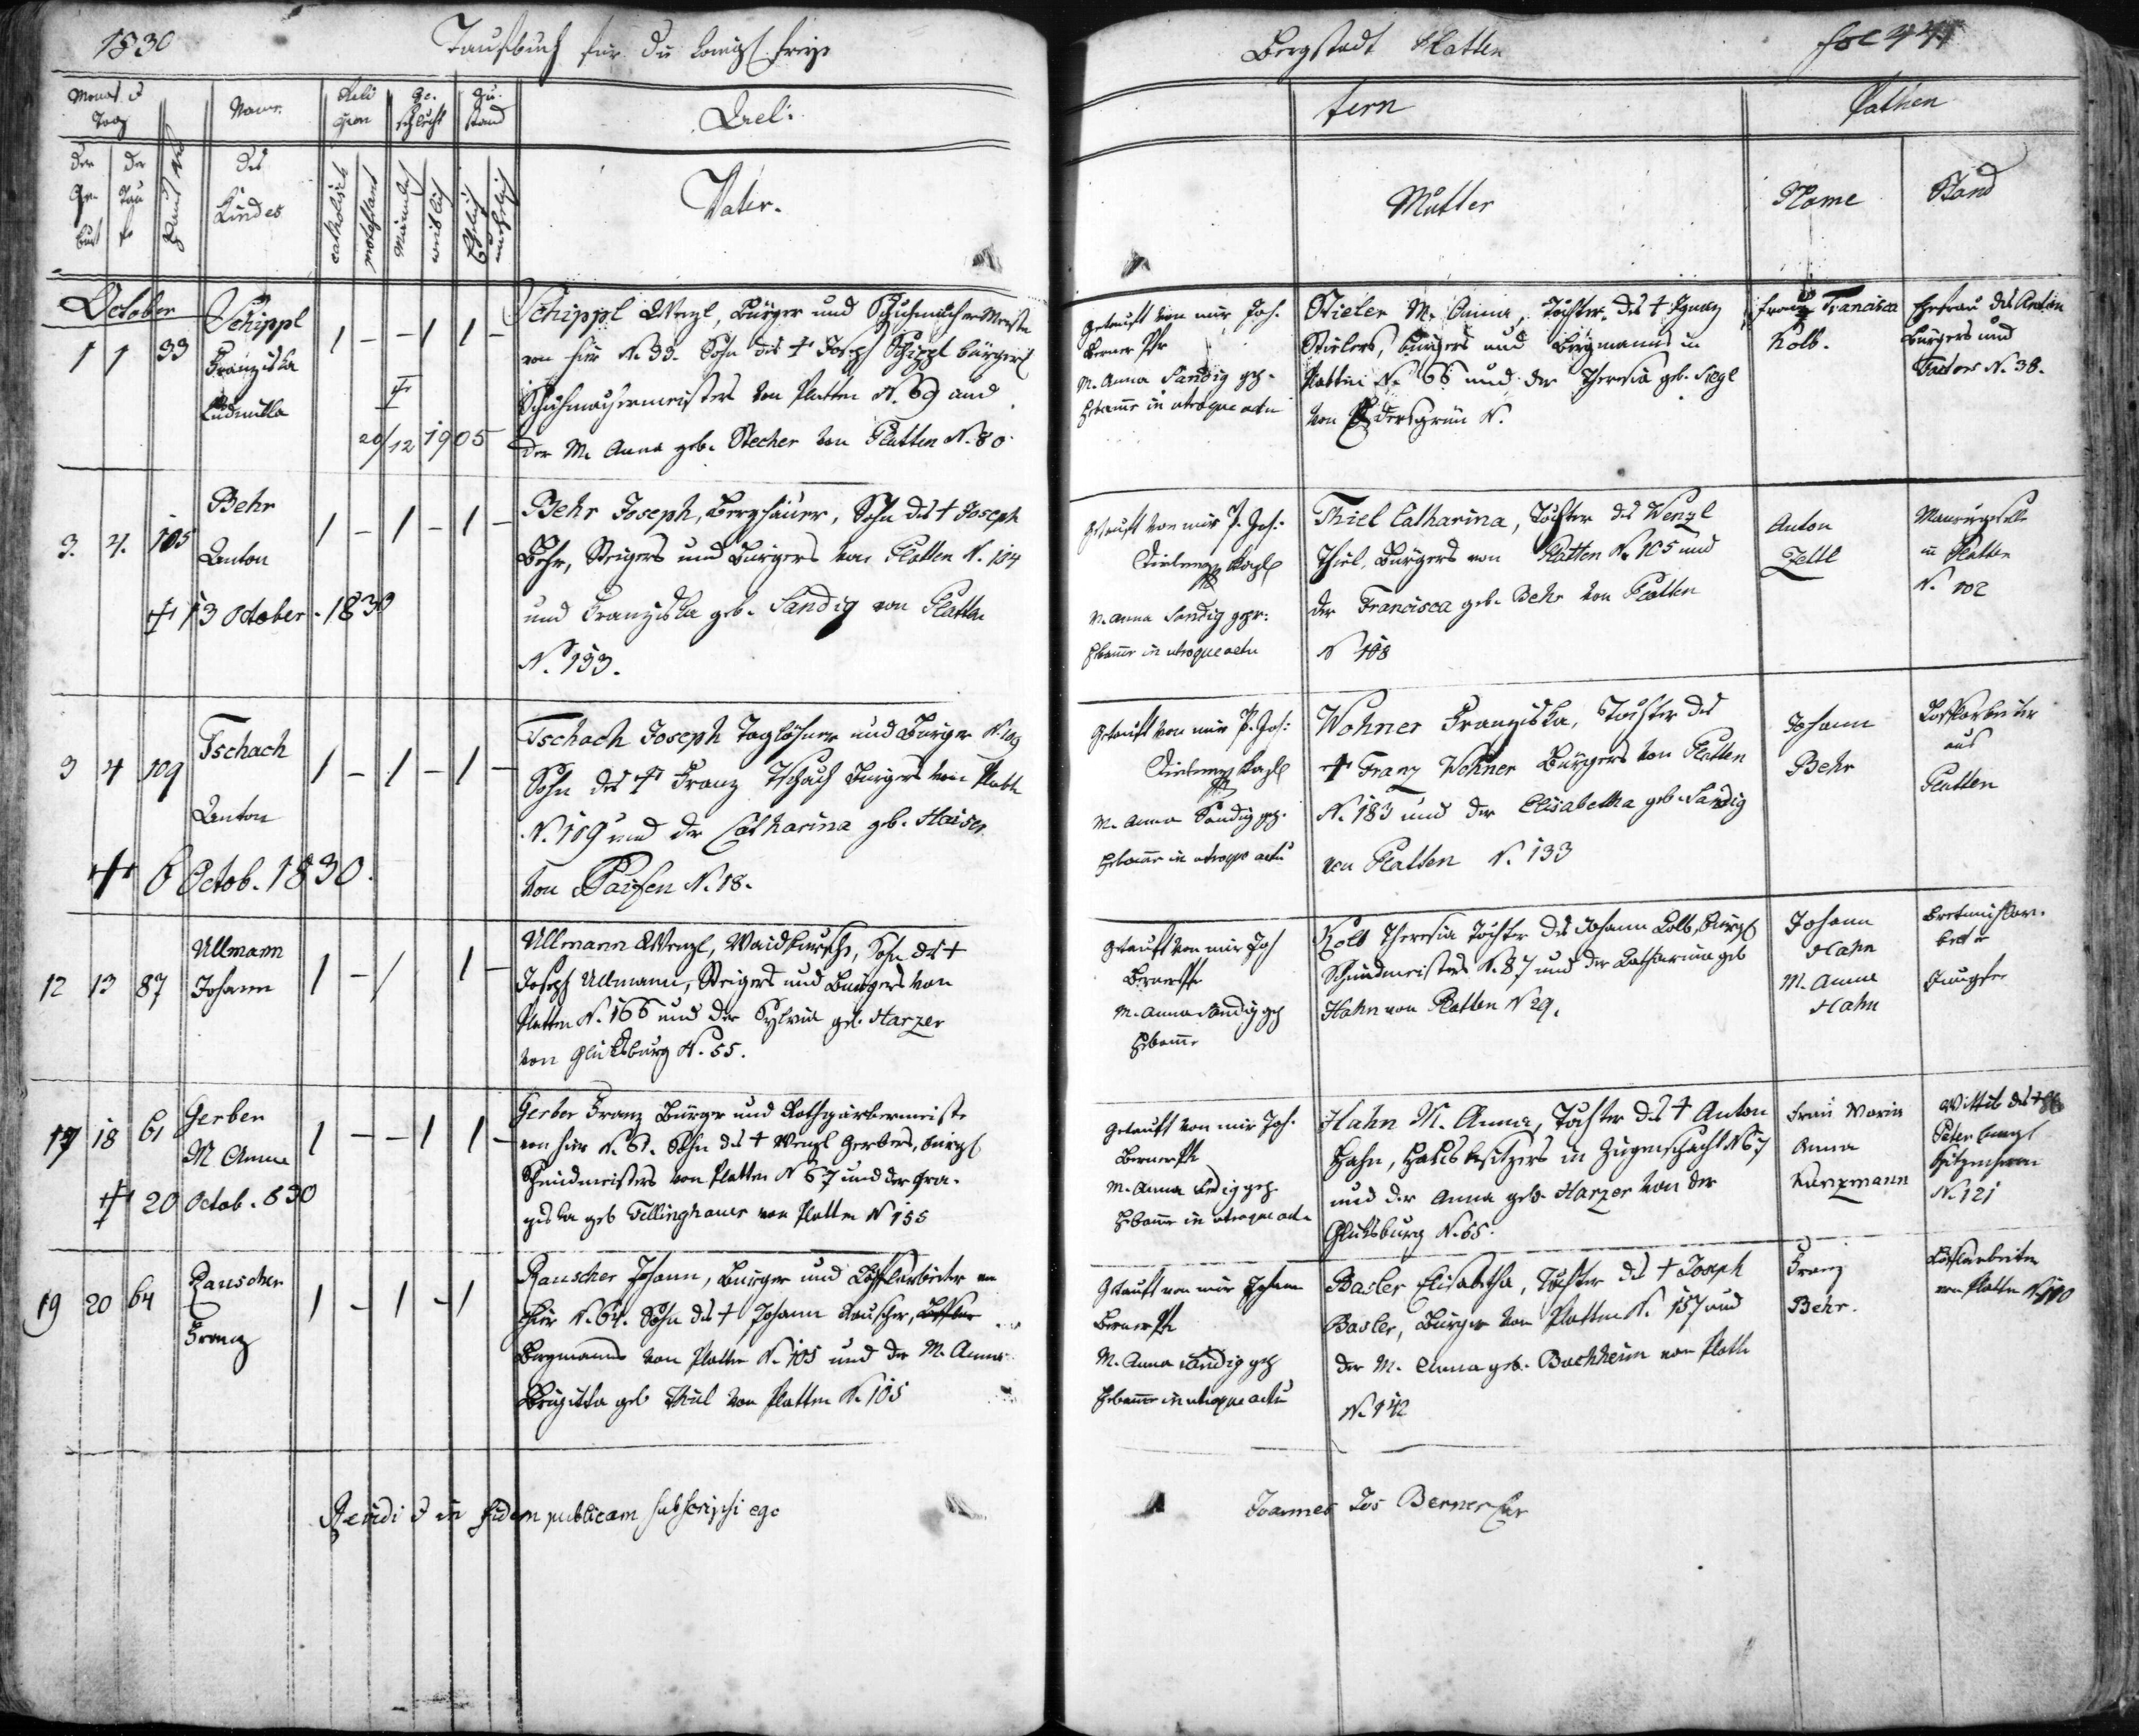 1830 Taufbuch für die königl. freye Bergstadt Platten
Monat u Tag
Name
Reli gion
Ge. schlecht
Zu. stand
Ael:
tern
Pathen
der Ge. burt
der Tau fe
Haus No
des Kindes
catholisch
protestant
Männlich
weiblich
Ehelich
unehelich
Vater.
Mutter
Name
Stand
October
1 1 33
Schippl
Franziska
Ludmilla
1 – – 1 1 –
20/12 1905
Schippl Wenzl, Bürger und Schuhmacher Meister
von hier N. 33. Sohn des † Joseph Schippl bürgerl
Schuhmachermeisters von Platten N. 69 und
der M. Anna geb. Stecher von Platten N. 80
Getauft von mir Joh.
Berner Pfr
M. Anna Sandig gep.
Hebamme in utroque actu
Stieler M. Anna, Tochter des † Ignaz
Stielers, Bürgers und Bergmanns in
Platten N. 66 und der Theresia geb. Siegl
von N.
Frau Francisca
Kolb.
Ehefrau des Anton
Bürgers und
Factors N. 38.
3. 4. 105
Behr
Anton
1 – 1 – 1 –
† 13 October. 1830
Behr Joseph, Berghäuer, Sohn des † Joseph
Behr, Steigers und Bürgers von Platten N. 104
und Franziska geb. Sandig von Platten
N. 133.
Getauft von mir P. Jos:
M. Anna Sandig gepr:
Hebamme in utroque actu
Thiel Catharina, Tochter des Wenzl
Thiel, Bürgers von Platten N. 105 und
der Francisca geb. Behr von Platten
N 108
Anton
Zettl
Maurergesell
in Platten
N. 102
3 4 109
Tschach
Anton
1 – 1 – 1 –
† 6 Octob. 1830.
Tschach Joseph Taglöhner und Bürger N. 109
Sohn des † Franz Tschach Bürgers von Platten
N. 109 und der Catharina geb. Haiser
von N. 18.
Getauft von mir P. Jos:
M. Anna Sandig gep.
Hebamme in utroque actu
Wohner Franziska, Tochter des
† Franz Wohner Bürgers von Platten
N. 183 und der Elisabetha geb. Sandig
von Platten N. 133
Johann
Behr
Löffelarbeiter
aus
Platten
12 13 87
Ullmann
Johann
1 – 1 1 –
Ullmann Wenzl, Sohn des †
Joseph Ullmann, Steigers und Bürgers von
Platten N. 166 und der Sylvia geb. Harzer
von Glücksburg N. 55.
Getauft von mir Joh
Berner Pfr
M. Anna Sandig gep
Hebamme
Kolb Theresia Tochter des Johann Kolb, bürgl
Schmidmeisters N. 87 und der Catharina geb
Hahn von Platten N 29.
Johann
Hahn
M. Anna
Hahn
Jungfer
17 18 61
Gerber
M Anna
1 – – 1 1 –
† 20 Octob. 830
Gerber Franz Bürger und Rothgärbermeister
von hier N. 61. Sohn des † Wenzl Gerbers, bürgl
Schmidmeisters von Platten N 67 und der Fran-
ziska geb Fellinghauer von Platten N 155
Getauft von mir Joh.
Berner Pfr
M. Anna Sandig gep
Hebamme in utroque actu
Hahn M. Anna, Tochter des † Anton
Hahn, Hausbesitzers in Zugenschacht N 67
und der Anna geb. Harzer von der
Glücksburg N. 55.
Frau Maria
Anna
Kunzmann
Wittib des †
Peter bürgl
N. 121
19 20 64
Rauscher
Franz
1 – 1 – 1
Rauscher Johann, Bürger und Löffelarbeiter von
hier N. 64. Sohn des † Johann Rauscher,
Bergmanns von Platten N. 105 und der M. Anna
Brigitta geb Thiel von Platten N. 105
Getauft von mir Johann
Berner Pfr
M. Anna Sandig gep
Hebamme in utroque actu
Basler Elisabetha, Tochter des † Joseph
Basler, Bürger von Platten N. 157 und
der M. Anna geb. Bachheim von Platten
N. 142
Franz
Behr.
Löffelarbeiter
von Platten
Revidi & in fidem publicam subscripsi ego Joannes Jos Berner